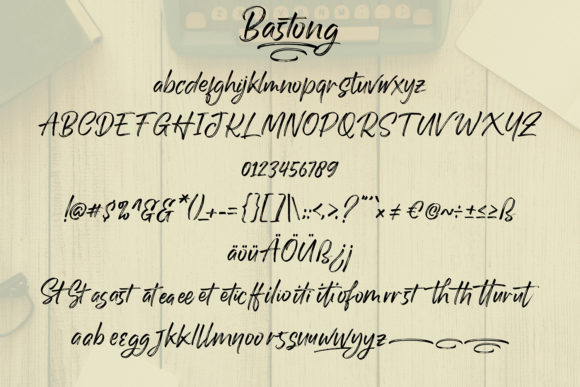 Bastong
abcdefghijklmnopqrstuvwxyz
ABCDEFGHIJKLMNOPQRSTUVWXYZ
0123456789
!@#$%^&& *()_+-={}[]|\:;<,>.?"'`× ≠ €@~÷±≤≥ß
äöüÄÖÜßjj
St St as ast at ea ee et etic ff ilio iti iti of om rr st th th tt ur ut